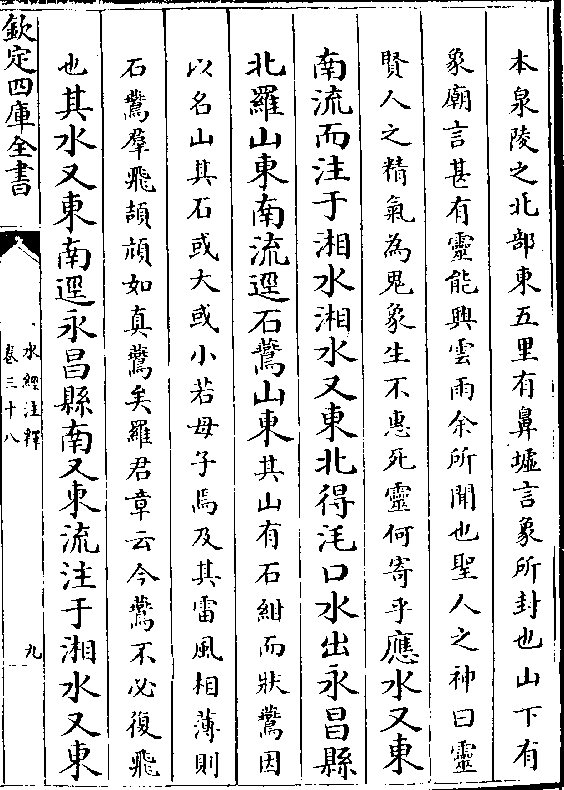 本泉陵之北部東五里有鼻墟言象所封也山下有
象廟言甚有靈能興雲雨余所聞也聖人之神曰靈
賢人之精氣為鬼象生不惠死靈何寄乎應水又東
南流而注于湘水湘水又東北得洭口水出永昌縣
北羅山東南流逕石鷰山東其山有石紺而狀鷰因
以名山其石或大或小若母子焉及其雷風相薄則
石鷰羣飛頡頏如真鷰矣羅君章云今鷰不必復飛
也其水又東南逕永昌縣南又東流注于湘水又東
欽定四庫全書
水經注釋
卷三十八
九